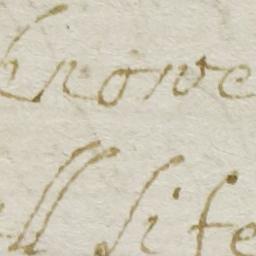 knowe
ll life